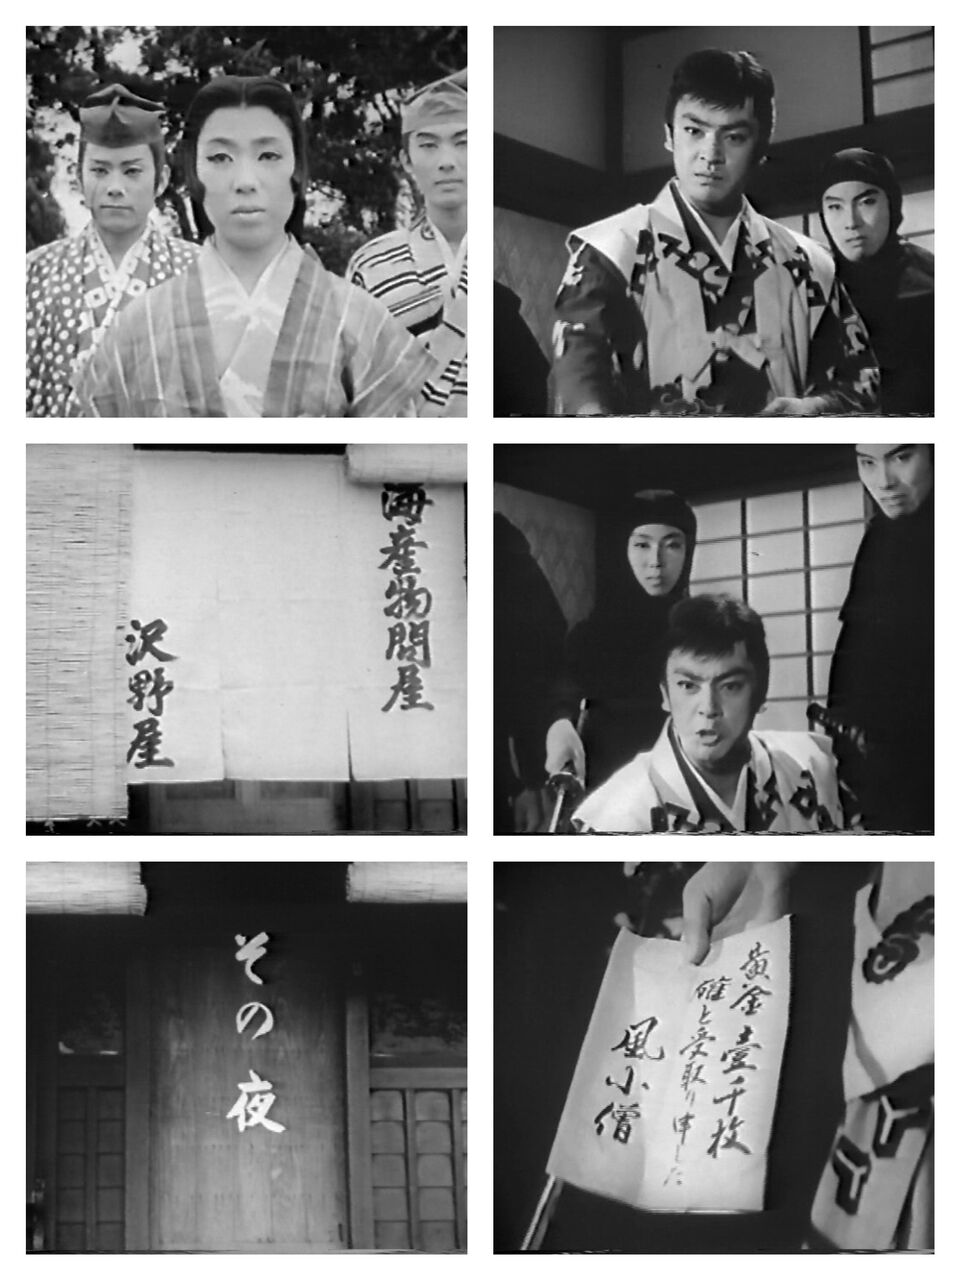 海産物問屋
沢野屋
その夜
黄金壹千枚
確と受取り申した
風小僧